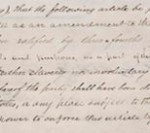 that the following article be
as an amendment to the
ratified by three fourths
and purposes, as a part of
slavery nor involuntary
the party shall have been
or any place subject to the
power to enforce this article by